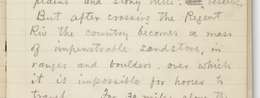 plains and stony hills.
But after crossing the Regent
Riv the country becomes a mass
of impenetrable sandstone, in
ranges and boulders, over which
it is impossible for horses to
travel. For 30 miles along the